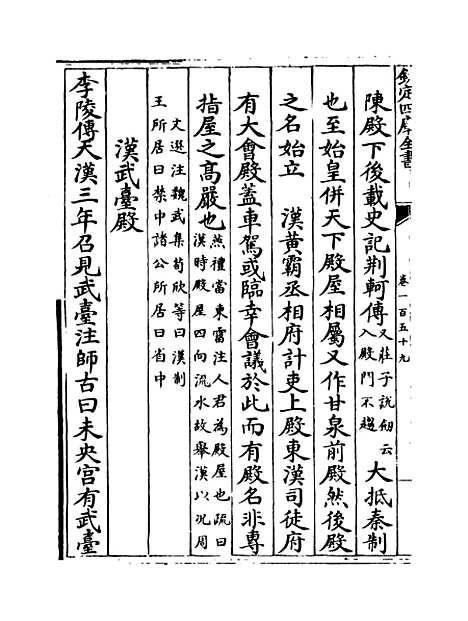 欽定四庫全書
卷一百五十九
陳殿下後載史記荆軻傳又莊子說劒云入殿門不趨大抵秦制
也至始皇併天下殿屋相屬又作甘泉前殿然後殿
之名始立 漢黃霸丞相府計吏上殿東漢司徒府
有大會殿蓋車駕或臨幸會議於此而有殿名非專
指屋之髙嚴也燕禮當東霤注人君為殿屋也疏曰漢時殿屋四向流水故舉漢以况周
文選注魏武集荀欣等曰漢制王所居曰禁中諸公所居曰省中
漢武臺殿
李陵傳天漢三年召見武臺注師古曰未央宫有武臺